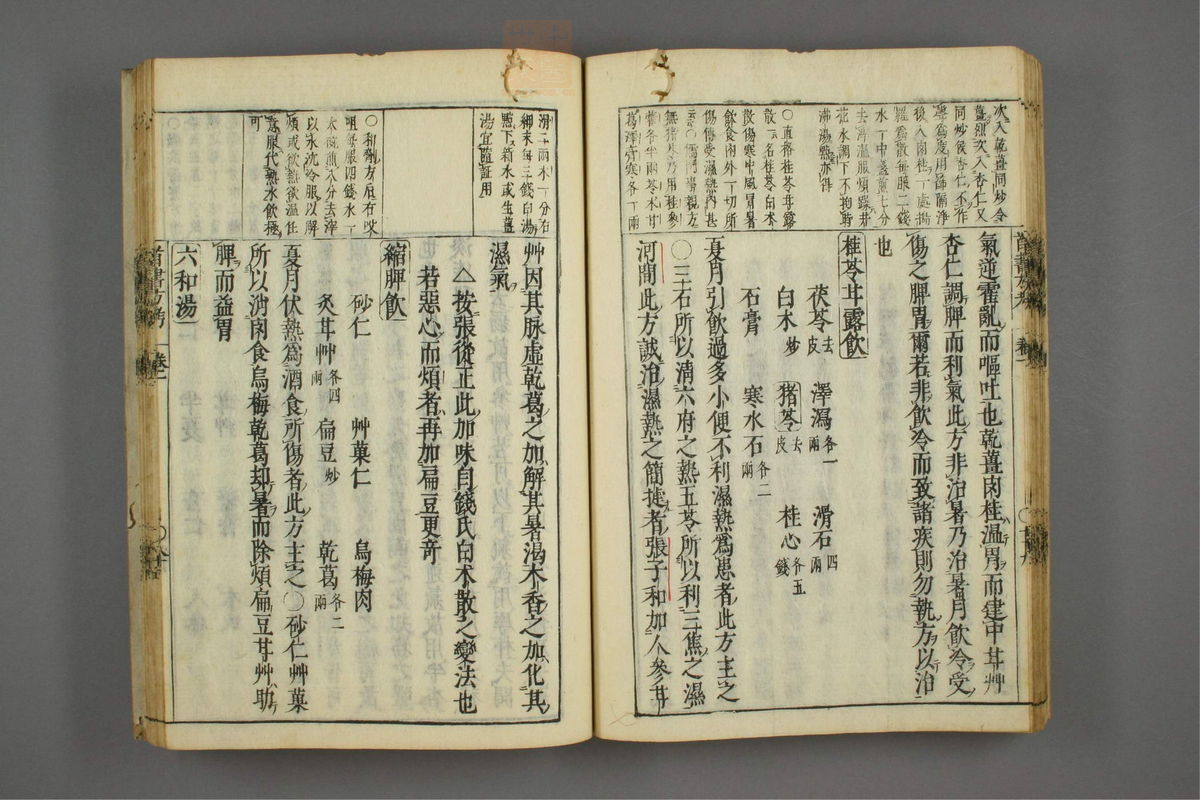 次入乾薑同炒令
薑細次入杏仁又
同炒候杏仁不作
聲爲度用篩隔淨
後入肉桂一處擣
羅爲散每服二錢
水一中盞煎七分
去滓溫服煩躁井
花水調下不拘時
沸湯點亦得
○直指桂苓甘露
散一名桂苓白朮
散傷寒中風冒暑
飲食內外一切所
傷傳受濕熱內甚
無猪苓乃用桂參
藿各半兩苓朮甘
葛澤膏寒各一兩
氣逆霍亂而嘔吐也乾薑肉桂溫胃而建中甘艸
杏仁調脾而利氣此方非治暑乃治暑月飲冷受
傷之脾胃爾若非飲冷而致諸疾則勿執方以治
也
桂苓甘露飲
茯苓去皮 澤瀉各一兩 滑石四兩
白朮炒 猪苓去皮 桂心各五錢
石膏 寒水石各二兩
夏月引飲過多小便不利濕熱爲患者此方主之
○三石所以清六府之熱五苓所以利三焦之濕
河間此方誠治濕熱之簡捷者張子和加人參甘
滑二兩木一分右
細末每三錢白湯
點下新水或生薑
湯宜隨證用
○和劑方右㕮
咀每服四錢水一
大碗煎八分去滓
以水沈冷服以解
煩或欲熱欲溫任
意服代熱水飲極
可
艸因其脉虛乾葛之加解其暑渴木香之加化其
濕氣
△按張從正此加味自錢氏白朮散之變法也
若惡心而煩者再加扁豆更奇
縮脾飲
砂仁 艸菓仁 烏梅肉
炙甘艸各四兩 扁豆炒 乾葛各二兩
夏月伏熱爲酒食所傷者此方主之○砂仁艸菓
所以消肉食烏梅乾葛却暑而除煩扁豆甘艸助
脾而益胃
六和湯